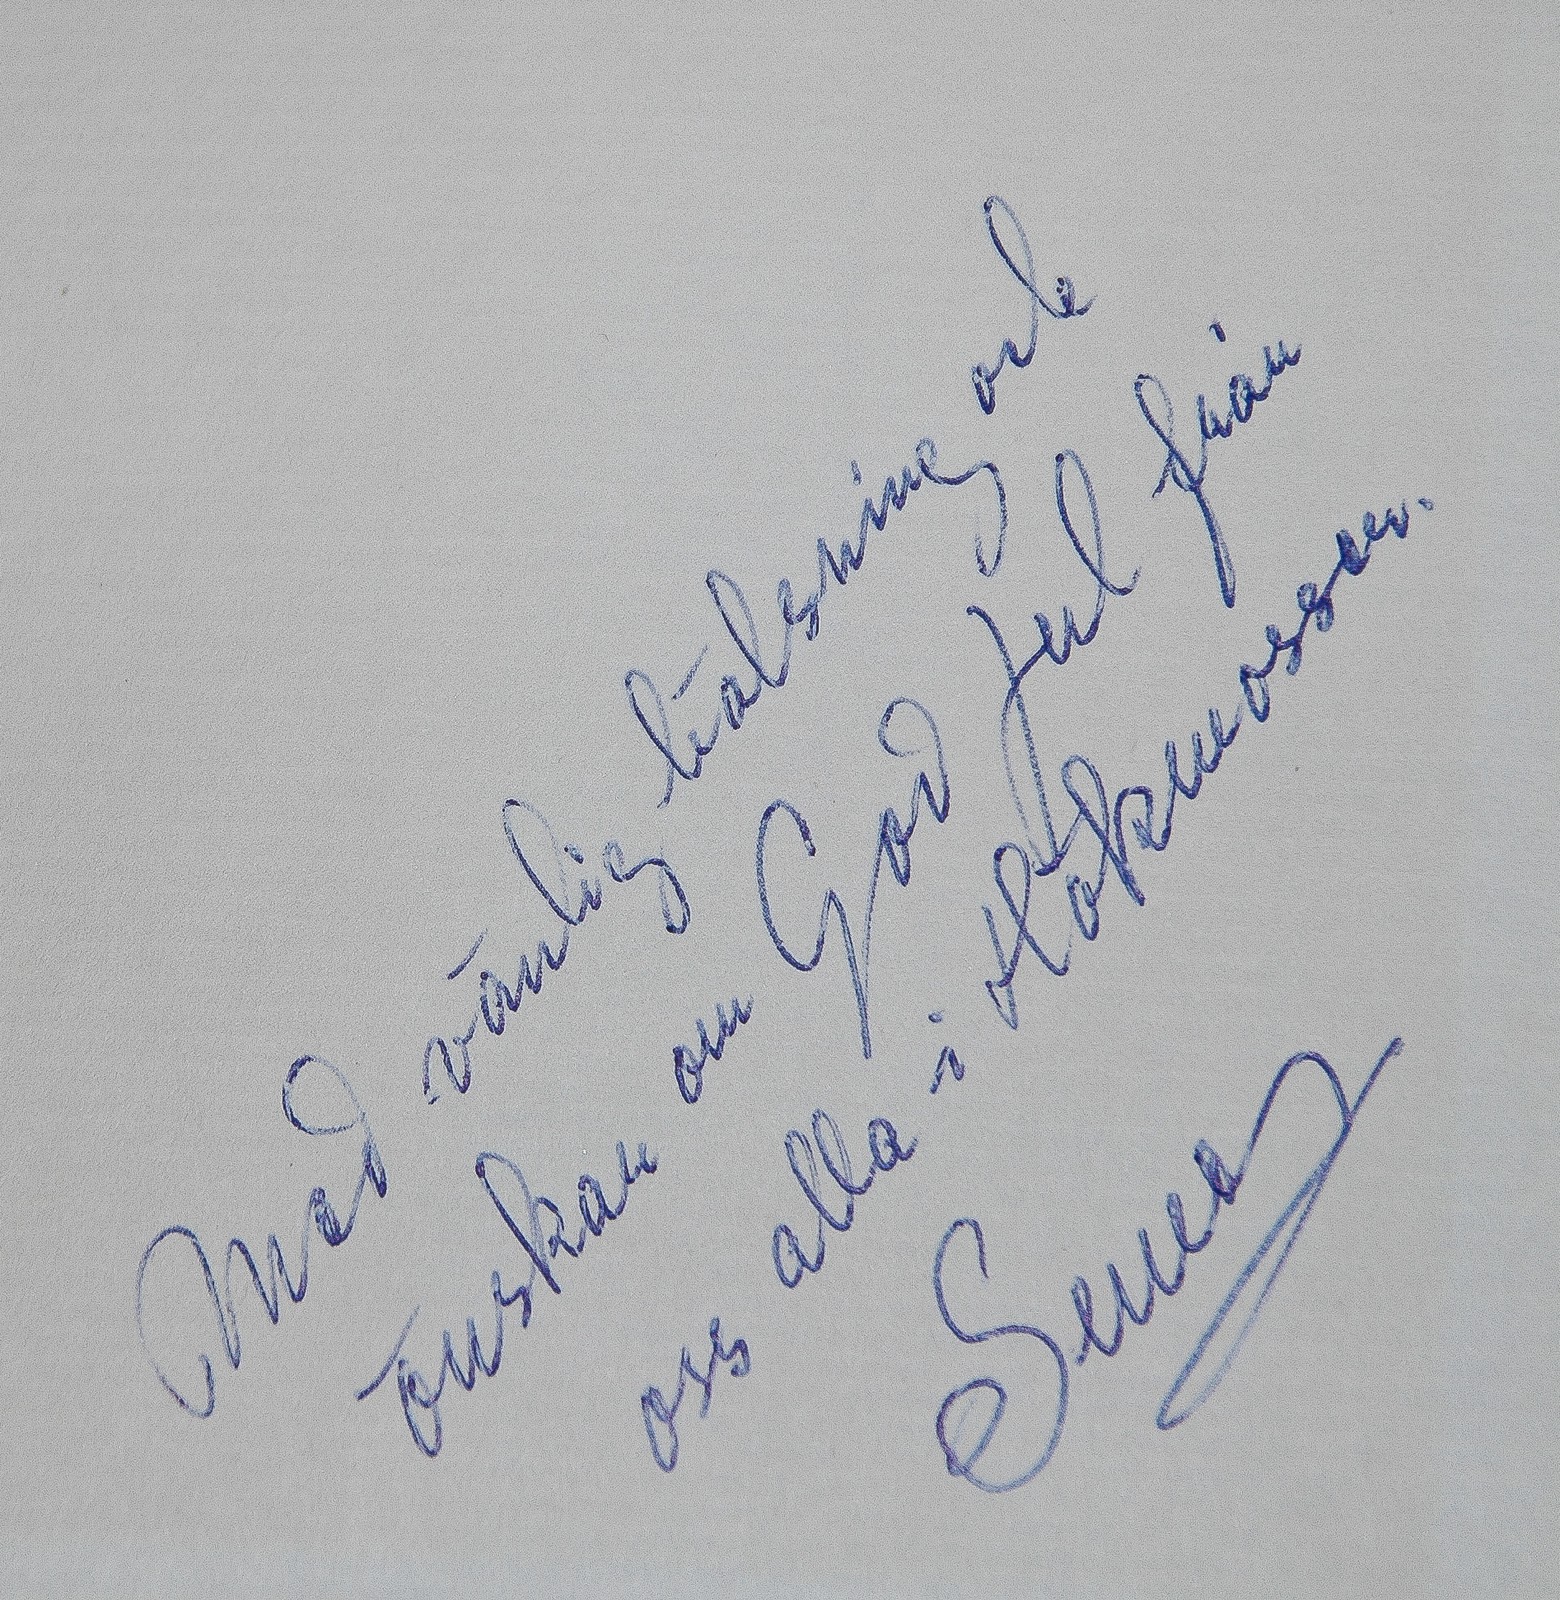 Med vänlig hälsning och
önskan om God Jul från
oss alla i Hökmossen.